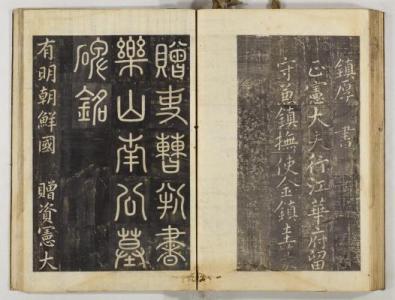 鎮厚 書
正憲大夫行江華府留
守兼鎮撫使金鎮圭
贈吏曹判書
樂山南公墓
碑銘
有明朝鮮國 贈資憲大